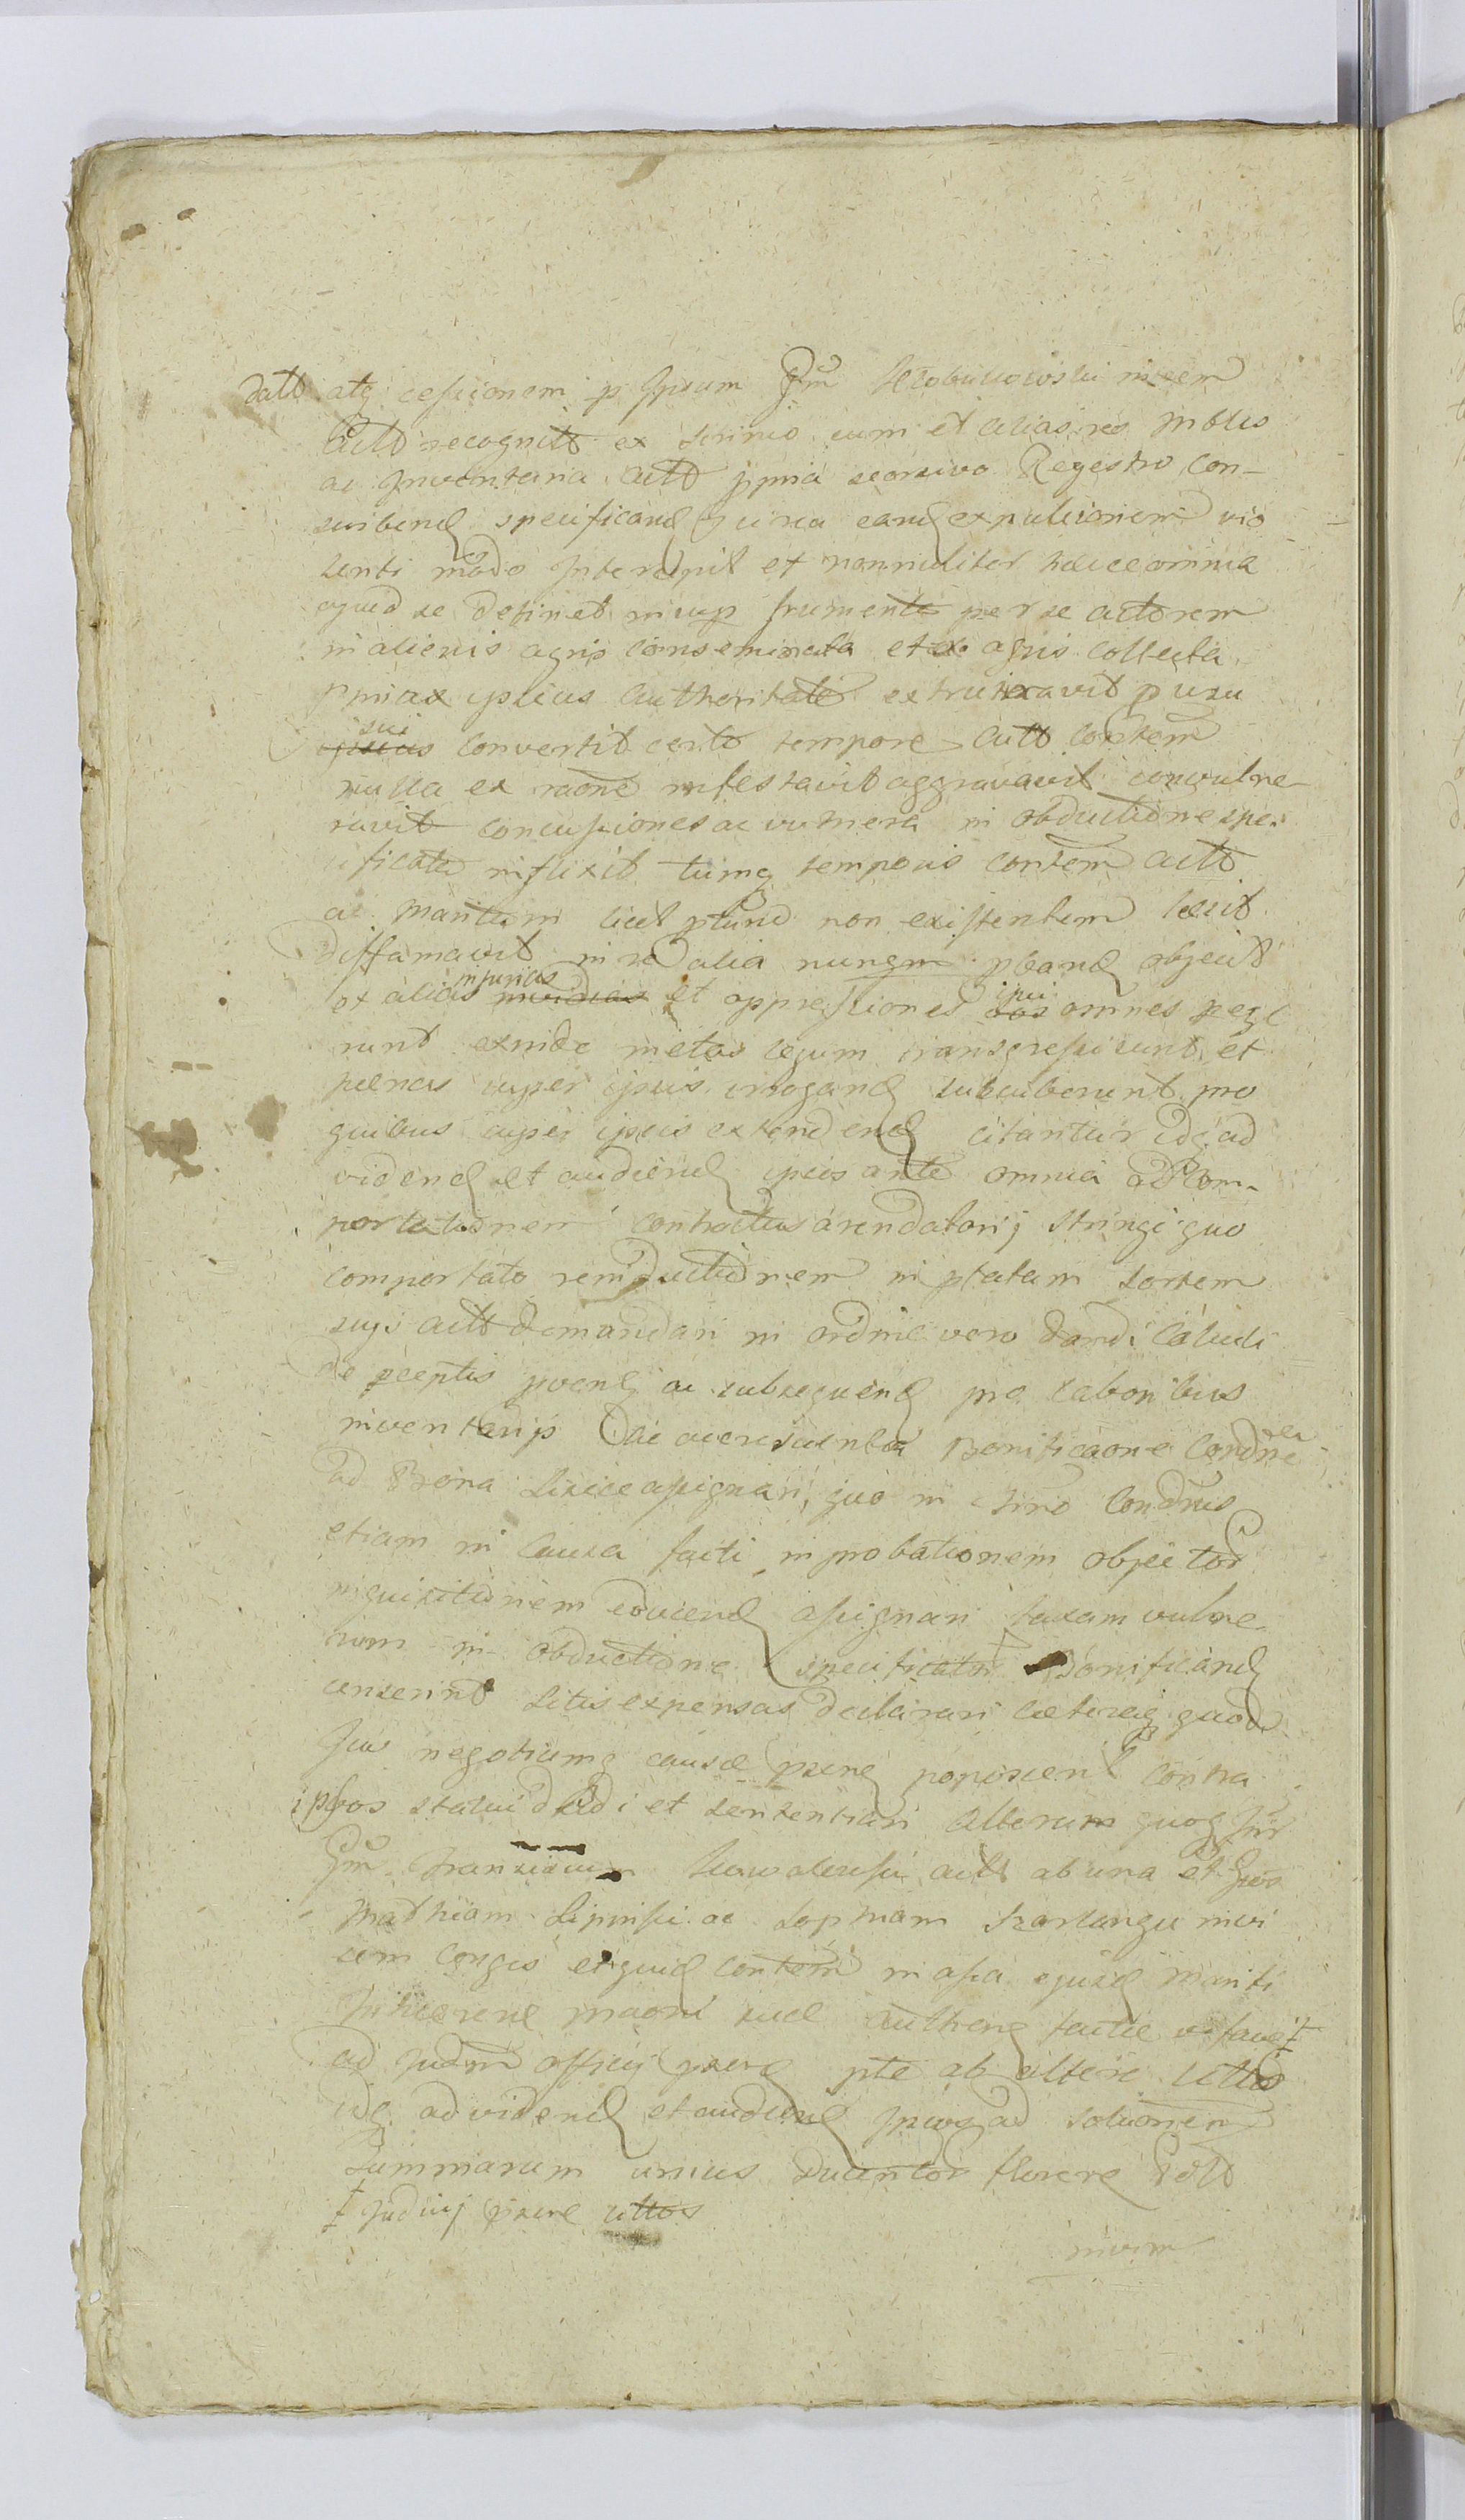 datt atq cessionem p Ipsum Gm Kłobukowski in rem
Actt recognitt ex scrinio cum et alias res mobles
ac Inventaria actt ppria seorsivo Regestro con-
scribend specificand circa eand expulsionem vio
lenti modo Intercepit et nonniliter haecce omnia
apud se detinet insup frumenta per se actorem
in alienis agris conseminata et ex agris collecta
ppria ipsius authoritate extrituravit p usu
sui convertit certo tempore actt contem
nulla ex raone infestavit aggravavit convulne-
ravit concussiones ac vulnera in obductione spe-
cificata inflixit tumq temporis contem actt
ac maritum licet ptunc non existentem laesit
diffamavit in re alia nunqm pband objecit
ex alias injurias et oppressiones ipsi omnes pege
runt exinde metas legum transgressi sunt et
paenas super ipsis irrogand succubuerunt pro
quibus super ipsis extendend citantur idq ad
vidend et audiend ipsis ante omnia ad Com-
portationem contractus arendatorij stringi quo
comportato reinductionem in ptatam sortem
sup actt demandari in ordine vero dandi calculi
de pceptis pvent ac subsequend pro laboribus
inventarijs ac accrescentia Bonificaone Condnem
ad Bona Lisice assignari, quo in Tmo Condnes
etiam in causa facti in probationem objector
inquisitionem educend assignari taxam vulne-
rum in obductione specificator Bonificand
censerint Litis expensas declarari caeteraq quod
Jus negotiumq causae psens poposcent contra
ipsos statui dedi et sententiari Alterum quoq Inr
Gm Franciscum Kowalewski actt ab una et Gnos
Mathiam Lipinski ac Sophiam Szarlangu invi
cem Conges et quid contem in assa ejusd mariti
Inhaerend praoni suae authend factae vestavit ‡
ad Judm officij psens pte ab altera citto
idq ad vidend et audiend Ipsos ad solutionem
Summarum unius ducentor floreno Polt
‡ Judicij psens cittos
invim